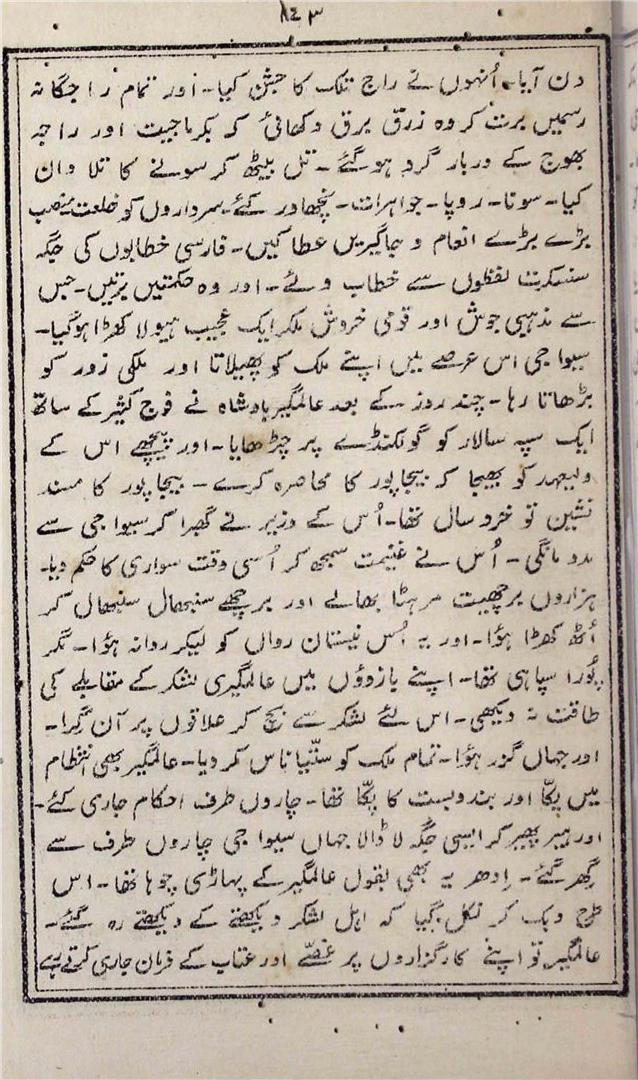 ۱۴۳
دن آیا۔ اُنہوں نے راج تلک کا جشن کیا۔ اور تمام راجگانہ
رسمیں برت کر وہ زرق برق دکھائی کہ بکرماجیت اور راجہ
بھوج کے دربار گرد ہو گئے۔ تل بیٹھ کر سونے کا تلا دان
کیا۔ سونا۔ روپا۔ جواہرات۔ نچھاور کئے۔ سرداروں کو خلعت۔ منصب
بڑے بڑے انعام و جاگیریں عطا کیں۔ فارسی خطابوں کی جگہ
سنسکرت لفظوں سے خطاب دئے۔ اور وہ حکمتیں برتیں۔ جس
سے مذہبی جوش اور قومی خروش ملکر ایک عجیب ہیولا کھڑا ہوگیا۔
سیوا جی اس عرصے میں اپنے ملک کو پھیلاتا اور ملکی زور کو
بڑھاتا رہا۔ چند روز کے بعد عالمگیر بادشاہ نے فوج کثیر کے ساتھ
ایک سپہ سالار کو گولکنڈے پر چڑھایا۔ اور پیچھے اس کے
ولیعہد کو بھیجا کہ بیجاپور کا محاصرہ کرے۔ بیجاپور کا مسند
نشین تو خرد سال تھا۔ اُس کے وزیر نے گھبرا کر سیوا جی سے
مدد مانگی۔ اُس نے غنیمت سمجھ کر اُسی وقت سواری کا حکم دیا۔
ہزاروں برچھیت مرہٹا بھالے اور برچھے سنبھال سنبھال کر
اُٹھ کھڑا ہؤا۔ اور یہ اُس نیستان رواں کو لیکر روانہ ہؤا۔ مگر
پُورا سپاہی تھا۔ اپنے بازوؤں میں عالمگیری لشکر کے مقابلے کی
طاقت نہ دیکھی۔ اس لئے لشکر سے بچ کر علاقوں پر آن گرا۔
اور جہاں گزر ہؤا۔ تمام ملک کو ستیاناس کر دیا۔ عالمگیر بھی انتظام
میں پکّا اور بندوبست کا پکّا تھا۔ چاروں طرف احکام جاری کئے۔
اور ہیر پھیر کر ایسی جگہ لا ڈالا جہاں سیوا جی چاروں طرف سے
گھر گئے۔ اِدھر یہ بھی بقول عالمگیر کے پہاڑی چوہا تھا۔ اس
طرح دبک کر نکل گیا کہ اہل لشکر دیکھتے کے دیکھتے رہ گئے۔
عالمگیر تو اپنے کارگزاروں پر غصّے اور عتاب کے فرمان جاری کرتے رہے